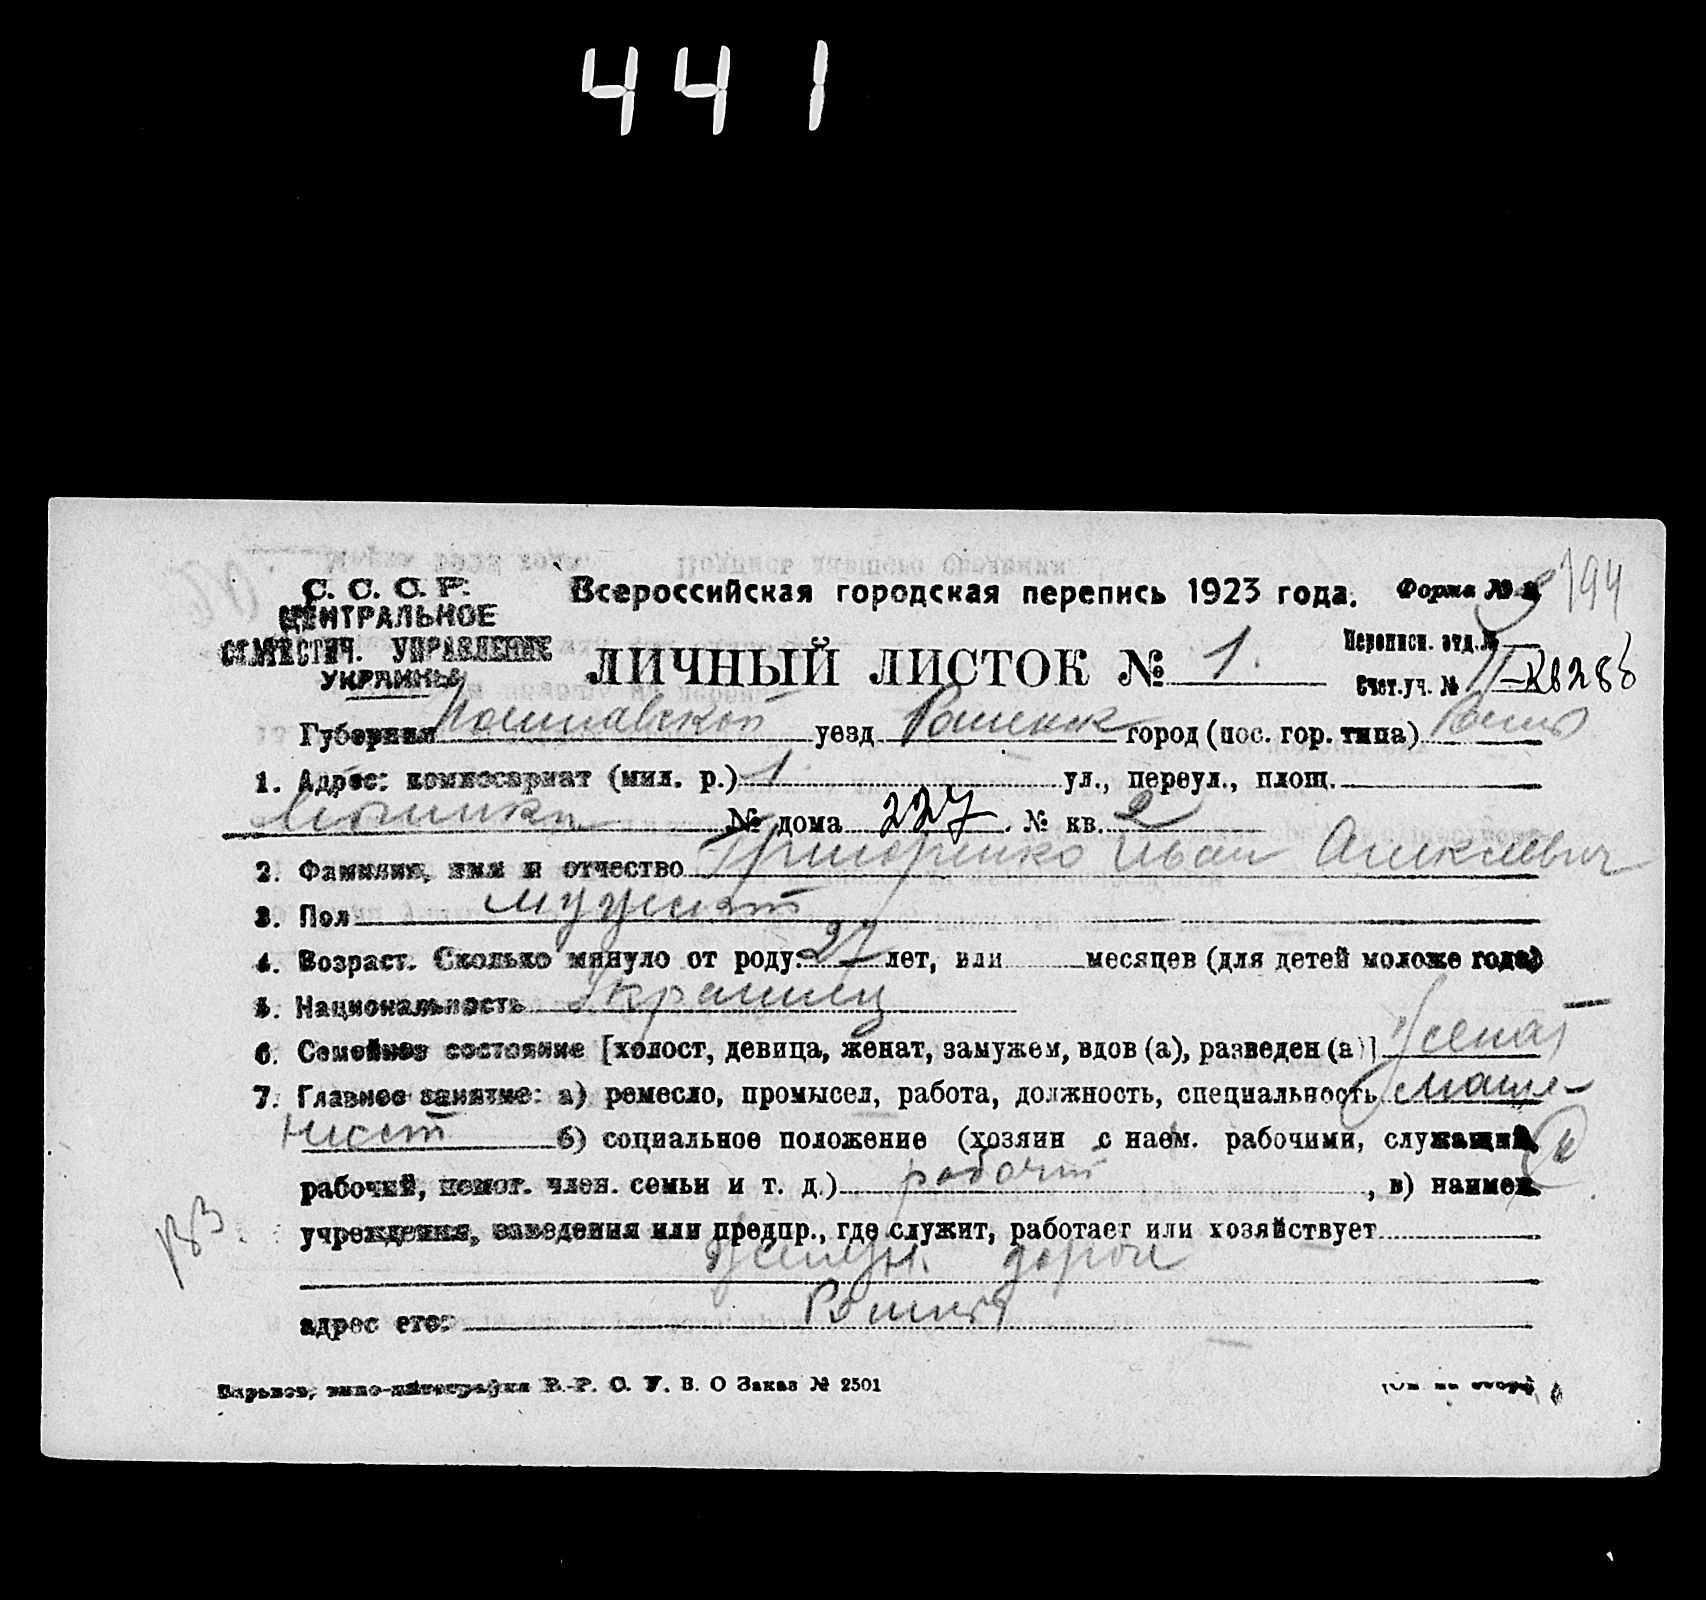 441
С. С. С. Р.
ЦЕНТРАЛЬНОЕ
СТАТИСТИЧ. УПРАВЛЕНИЕ
УКРАИНЫ
Всероссийская городская перепись 1923 года.
Форма №
194
ЛИЧНЫЙ ЛИСТОК № 1.
Переписн. отд. №
Счет. уч. №
Губерния Полтавской уезд Роменск город (пос. гор. типа) Ромны
1. Адрес: комиссариат (мил. р.) 1 ул., переул., площ.
№ дома 227. № кв. 2
2. Фамилия, имя и отчество Григоренко Иван Алексеевич
3. Пол мужской
4. Возраст. Сколько минуло от роду 27 лет, или месяцев (для детей моложе года)
5. Национальность Украинец
6. Семейное состояние [холост, девица, женат, замужем, вдов (а), разведен (а)] Женат
7. Главное занятие: а) ремесло, промысел, работа, должность, специальность маши-
нист б) социальное положение (хозяин с наем. рабочими, служащий,
рабочий, помог. член. семьи и т. д.) рабочий, в) наимен.
учреждения, заведения или предпр., где служит, работает или хозяйствует
Железн. дорог
адрес его: Ромны
Харьков, типо-литография В. Р. С. У. В. О Заказ № 2501